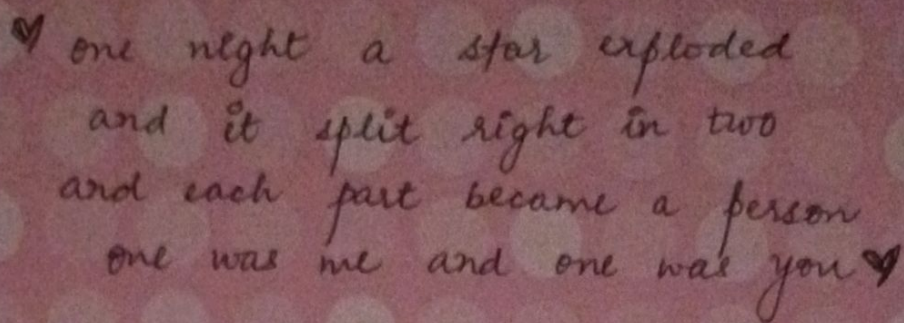 one night a star exploded
and it split right in two
and each part became a person
one was me and one was you